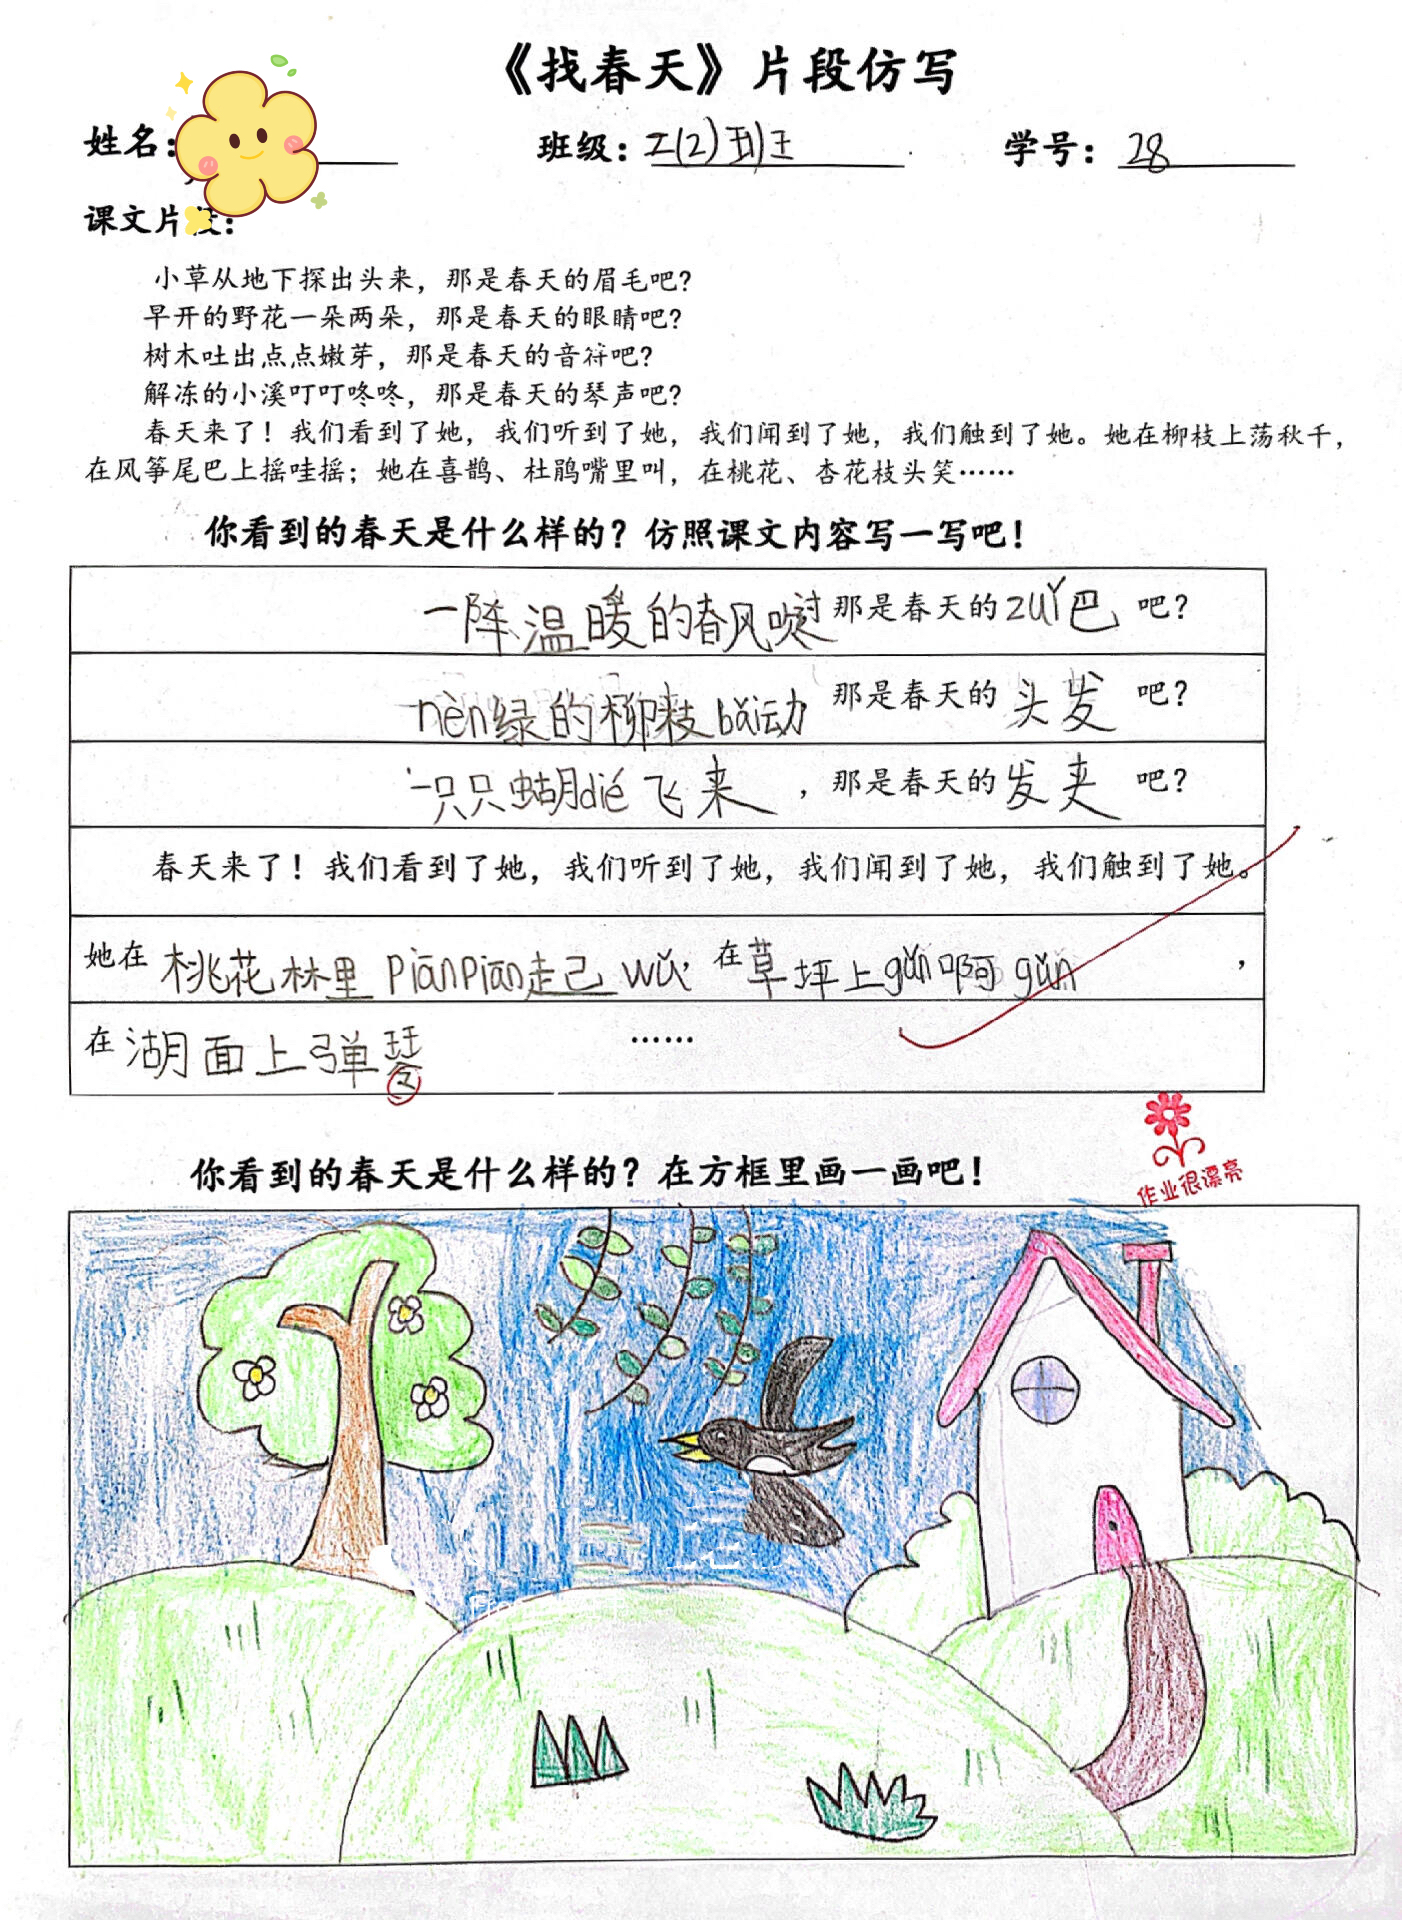 《找春天》片段仿写
姓名: 班级: 二(2)班 学号: 28
课文片段:
小草从地下探出头来,那是春天的眉毛吧?
早开的野花一朵两朵,那是春天的眼睛吧?
树木吐出点点嫩芽,那是春天的音符吧?
解冻的小溪叮叮咚咚,那是春天的琴声吧?
春天来了!我们看到了她,我们听到了她,我们闻到了她,我们触到了她。她在柳枝上荡秋千,
在风筝尾巴上摇哇摇;她在喜鹊、杜鹃嘴里叫,在桃花、杏花枝头笑……
你看到的春天是什么样的?仿照课文内容写一写吧!
一阵温暖的春风 过 那是春天的 zuǐ巴 吧?
nèn绿的柳枝bǎi动 那是春天的 头发 吧?
一只只蝴dié飞来 ,那是春天的 发夹 吧?
春天来了!我们看到了她,我们听到了她,我们闻到了她,我们触到了她。
她在 桃花林里piānpiān走己wǔ, 在 草坪上gǔn啊gǔn ,
在 湖面上弹琴 ……
作业很漂亮
你看到的春天是什么样的?在方框里画一画吧!